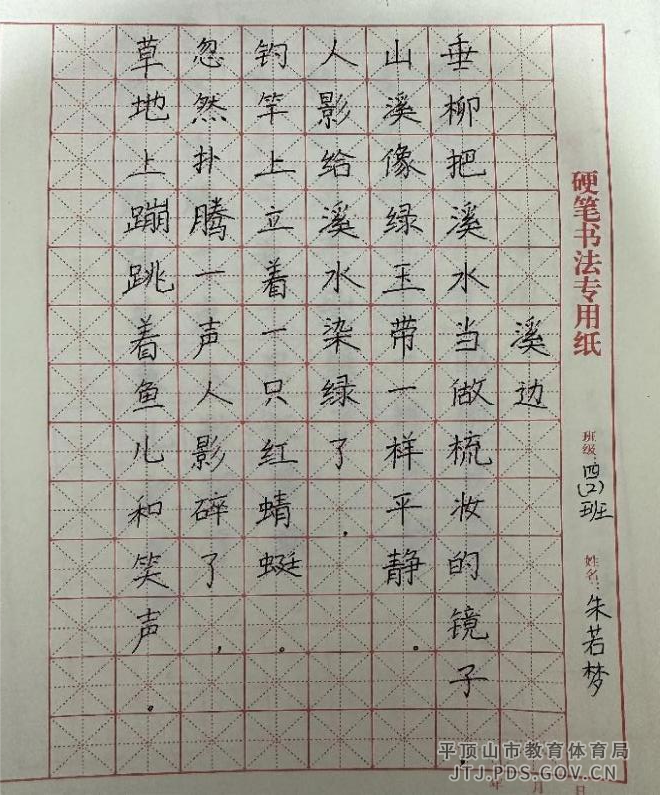 硬笔书法专用纸
班级:四(2)班 姓名:朱若梦
溪边
垂柳把溪水当做梳妆的镜子，
山溪像绿玉带一样平静。
人影给溪水染绿了，
钓竿上立着一只红蜻蜓。
忽然扑腾一声人影碎了，
草地上蹦跳着鱼儿和笑声。
年 月 日
平顶山市教育体育局
JTJ.PDS.GOV.CN